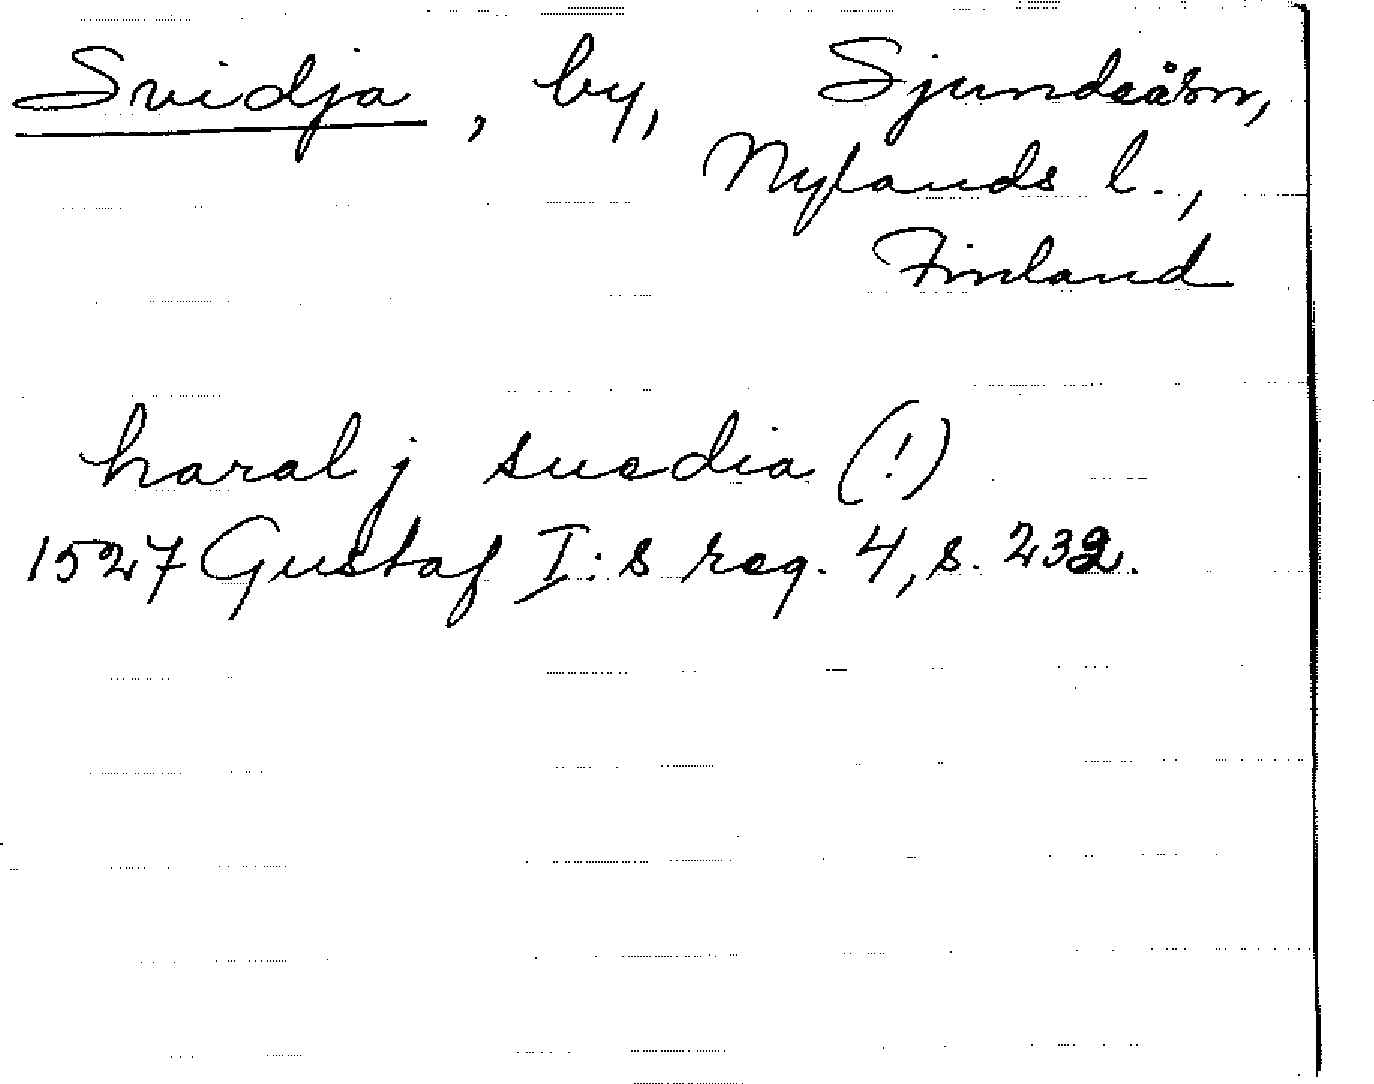 Svidja, by, Sjundeå sn,
Nylands l.,
Finland
haral j suedia (!)
1527 Gustaf I:s reg. 4, s. 232.